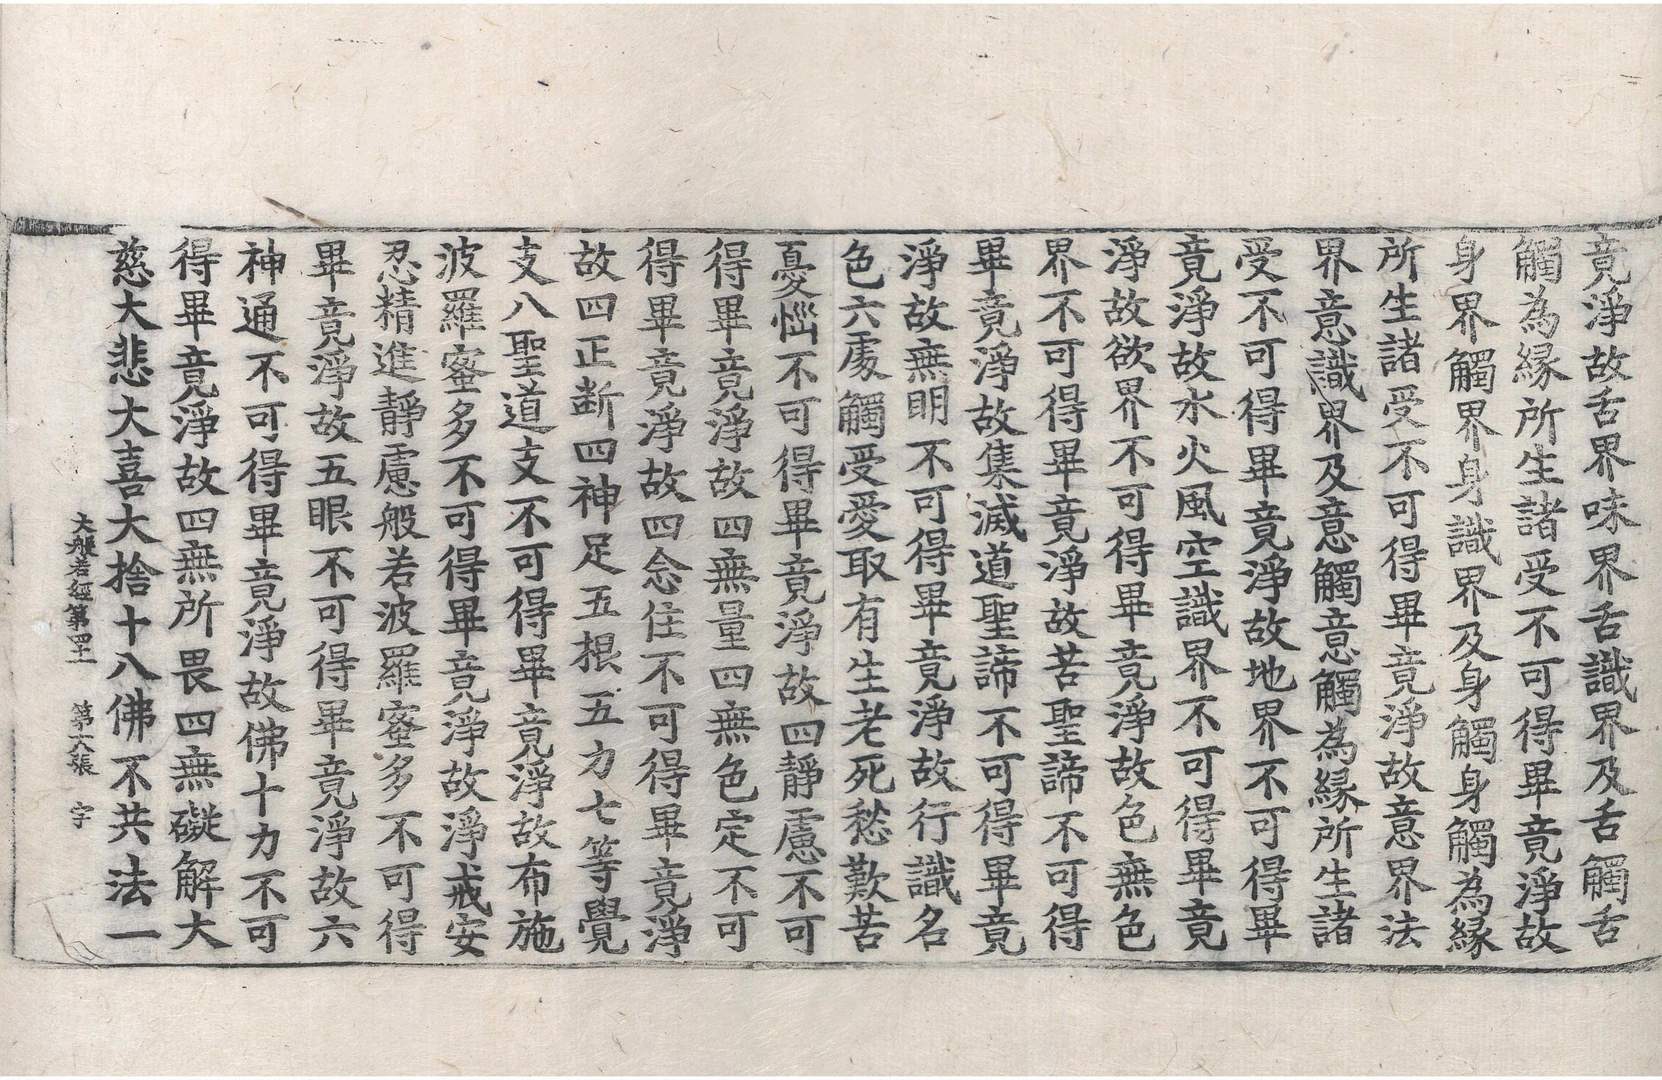 竟淨故舌界味界舌識界及舌觸舌
觸為緣所生諸受不可得畢竟淨故
身界觸界身識界及身觸身觸為緣
所生諸受不可得畢竟淨故意界法
界意識界及意觸意觸為緣所生諸
受不可得畢竟淨故地界不可得畢
竟淨故水火風空識界不可得畢竟
淨故欲界不可得畢竟淨故色無色
界不可得畢竟淨故苦聖諦不可得
畢竟淨故集滅道聖諦不可得畢竟
淨故無明不可得畢竟淨故行識名
色六處觸受愛取有生老死愁歎苦
憂惱不可得畢竟淨故四靜慮不可
得畢竟淨故四無量四無色定不可
得畢竟淨故四念住不可得畢竟淨
故四正斷四神足五根五力七等覺
支八聖道支不可得畢竟淨故布施
波羅蜜多不可得畢竟淨故淨戒安
忍精進靜慮般若波羅蜜多不可得
畢竟淨故五眼不可得畢竟淨故六
神通不可得畢竟淨故佛十力不可
得畢竟淨故四無所畏四無礙解大
慈大悲大喜大捨十八佛不共法一
大般若經第 第六張 字